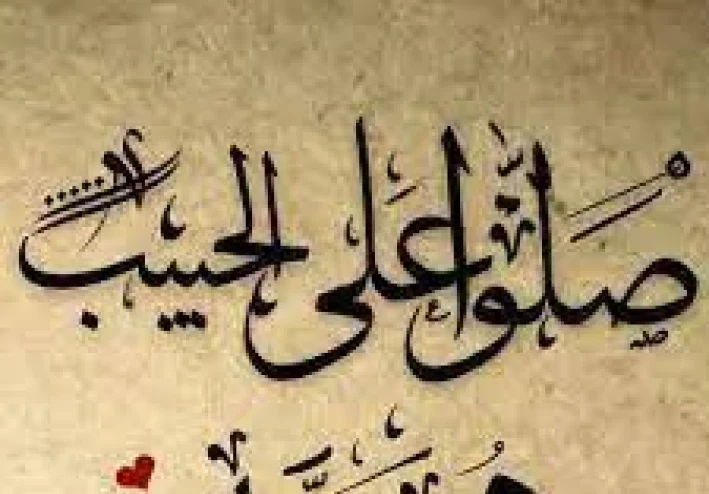 صَلُّوا عَلَى الحبيب